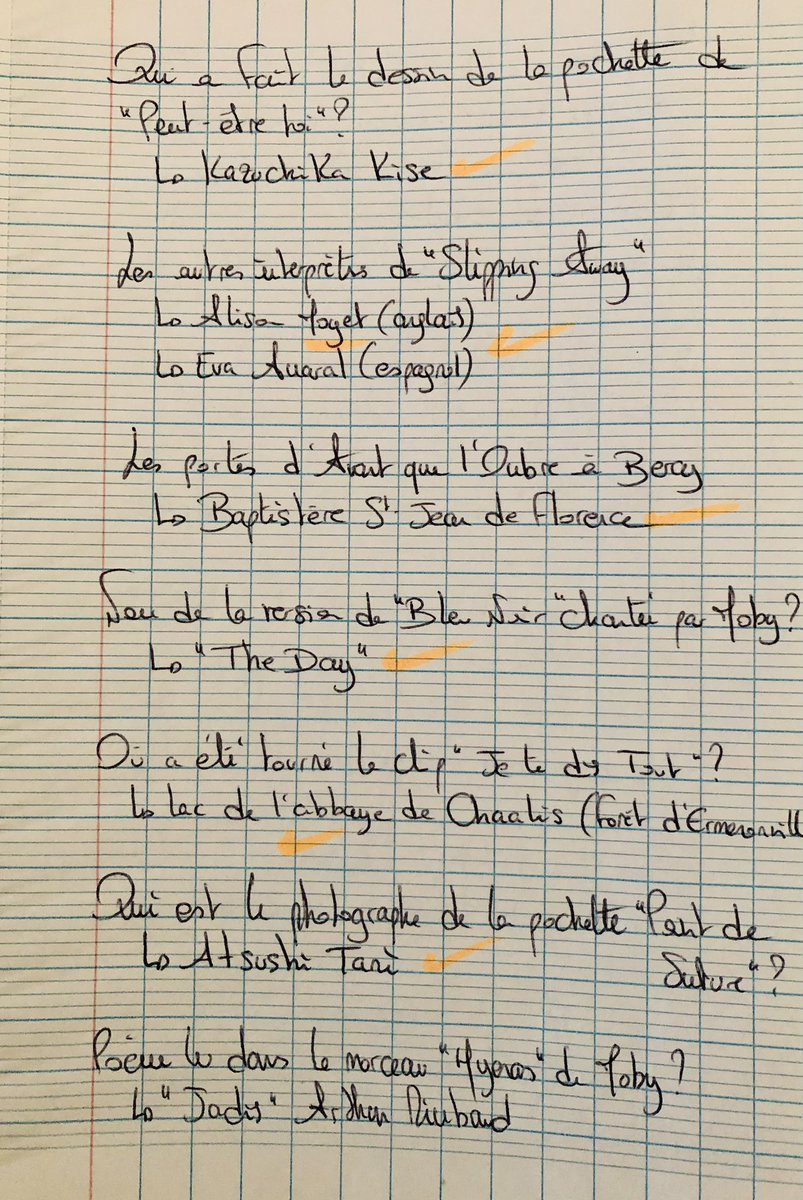 Qui a fait le dessin de la pochette de
"Peut-être toi"?
↳ Kazuchika Kise
Les autres interprètes de "Slipping Away"
↳ Alison Moyet (anglais)
↳ Eva Amaral (espagnol)
Les portes d'Avant que l'Ombre à Bercy
↳ Baptistère St Jean de Florence
Nom de la version de "Bleu Noir" chanté par Moby?
↳ "The Day"
Où a été tourné le clip "Je te dis Tout"?
↳ lac de l'abbaye de Chaalis (forêt d'Ermenonvill
Qui est le photographe de la pochette "Point de
↳ Atsushi Tani
Suture"?
Poème lu dans le morceau "Hyenas" de Moby?
↳ "Jadis" Arthur Rimbaud